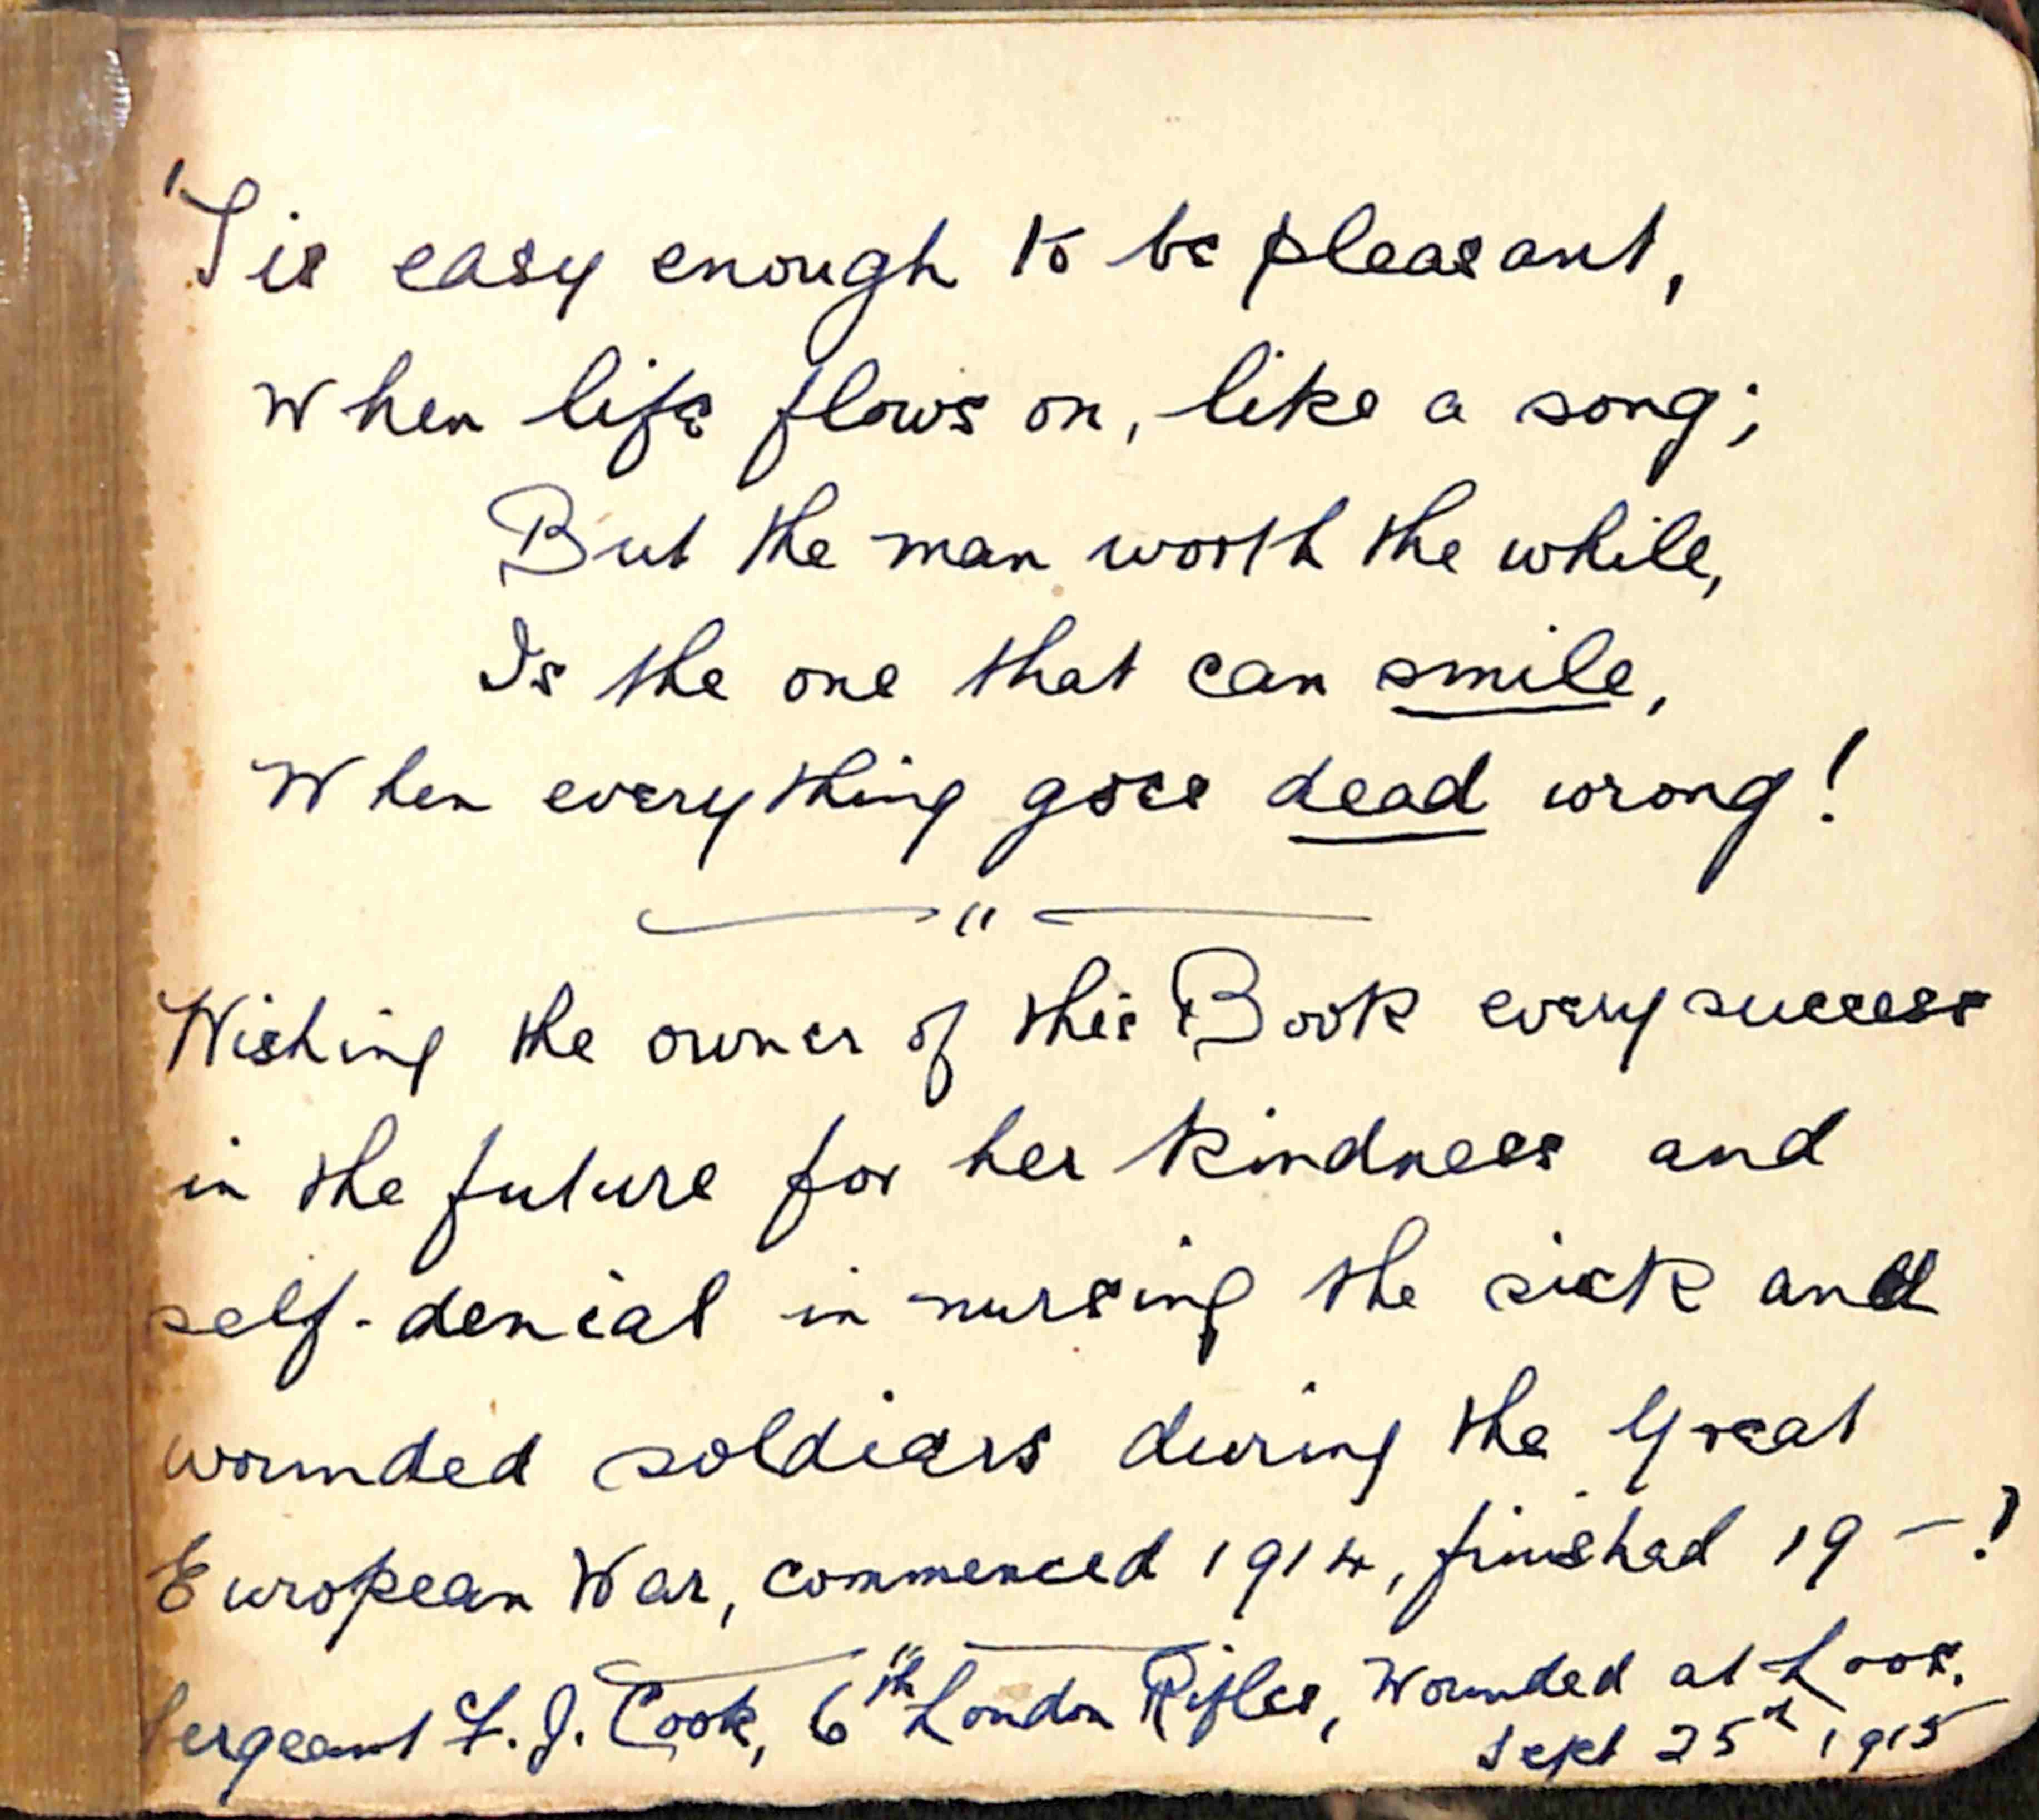 'Tis easy enough to be pleasant,
When life flows on, like a song;
But the man worth the while,
Is the one that can smile,
When everything goes dead wrong!
Wishing the owner of this Book every success
in the future for her kindness and
self-denial in nursing the sick and
wounded soldiers during the Great
European War, commenced 1914, finished 19 - ?
Sergeant F. J. Cook, 6th London Rifles, Wounded at Loos.
Sept 25th 1915